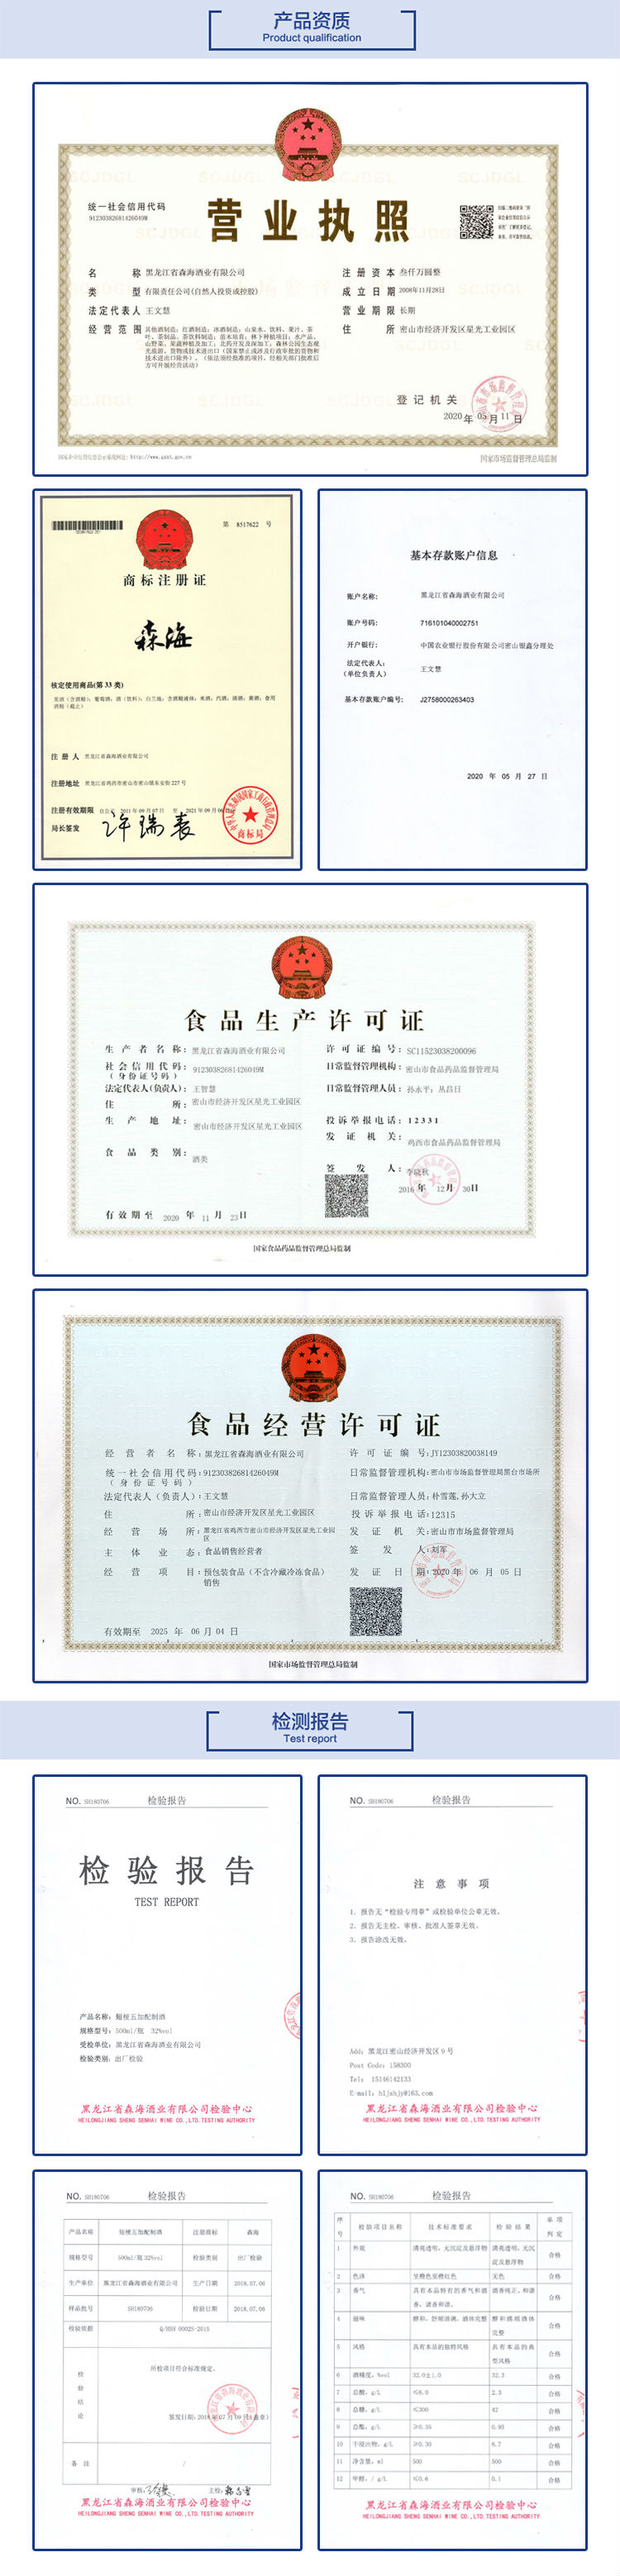 产品资质
Product qualification
统一社会信用代码
91230382681426049M
营业执照
名 称 黑龙江省森海酒业有限公司
类 型 有限责任公司(自然人投资或控股)
法定代表人 王文慧
经营范围
注册资本 叁仟万圆整
成立日期 2008年11月28日
营业期限 长期
住 所 密山市经济开发区星光工业园区
登记机关
2020年05月11日
国家市场监督管理总局监制
第 8517622 号
商标注册证
森海
核定使用商品(第33类)
注册人 黑龙江省森海酒业有限公司
注册地址 黑龙江省鸡西市密山市密山镇东安街227号
注册有效期限
局长签发
基本存款账户信息
账户名称: 黑龙江省森海酒业有限公司
账户号码: 716101040002751
开户银行: 中国农业银行股份有限公司密山银鑫分理处
法定代表人: 王文慧
(单位负责人)
基本存款账户编号: J2758000263403
2020 年 05 月 27 日
食品生产许可证
生产者名称: 黑龙江省森海酒业有限公司
社会信用代码: 91230382681426049M
(身份证号码)
法定代表人(负责人): 王智慧
住 所: 密山市经济开发区星光工业园区
生产地址: 密山市经济开发区星光工业园区
食品类别: 酒类
有效期至 2020 年 11 月 23日
许可证编号: SC11523038200096
日常监督管理机构: 密山市食品药品监督管理局
日常监督管理人员: 孙永平; 丛昌日
投诉举报电话: 12331
发证机关: 鸡西市食品药品监督管理局
签发人: 李晓秋
2016 年 12月 30日
国家食品药品监督管理总局监制
食品经营许可证
经营者名称: 黑龙江省森海酒业有限公司
统一社会信用代码: 91230382681426049M
(身份证号码)
法定代表人(负责人): 王文慧
住 所: 密山市经济开发区星光工业园区
经营场所: 黑龙江省鸡西市密山市经济开发区星光工业园区
主体业态: 食品销售经营者
经营项目: 预包装食品(不含冷藏冷冻食品)
销售
有效期至 2025 年 06 月 04 日
许可证编号: JY12303820038149
日常监督管理机构: 密山市市场监督管理局黑台市场所
日常监督管理人员: 朴雪莲,孙大立
投诉举报电话: 12315
发证机关: 密山市市场监督管理局
签发人: 刘军
发证日期: 2020 年 06 月 05 日
国家市场监督管理总局监制
检测报告
Test report
NO. SH180706 检验报告
检验报告
TEST REPORT
产品名称: 短梗五加配制酒
规格型号: 500ml/瓶 32%vol
受检单位: 黑龙江省森海酒业有限公司
检验类别: 出厂检验
黑龙江省森海酒业有限公司检验中心
HEILONGJIANG SHENG SENHAI WINE CO.,LTD.TESTING AUTHORITY
NO. SH180706 检验报告
注意事项
1. 报告无“检验专用章”或检验单位公章无效。
2. 报告无主检、审核、批准人签章无效。
3. 报告涂改无效。
Add: 黑龙江密山经济开发区9号
Post Code: 158300
Tel: 15146142133
E-mail: hljshjy@163.com
黑龙江省森海酒业有限公司检验中心
HEILONGJIANG SHENG SENHAI WINE CO.,LTD.TESTING AUTHORITY
NO. SH180706 检验报告
产品名称 短梗五加配制酒 注册商标 森海
规格型号 500ml/瓶 32%vol 检验类别 出厂检验
生产单位 黑龙江省森海酒业有限公司 生产日期 2018.07.06
样品批号 SH180706 检验日期 2018.07.06
检验依据 Q/HSH 0002S-2015
检验结论
所检项目符合标准规定。
备注 /
审核: 主检:
黑龙江省森海酒业有限公司检验中心
HEILONGJIANG SHENG SENHAI WINE CO.,LTD.TESTING AUTHORITY
NO. SH180706 检验报告
序号 检验项目名称 技术标准要求 检验结果 单项判定
1 外观 清亮透明，无沉淀及悬浮物 清亮透明，无沉淀及悬浮物 合格
2 色泽 无色 合格
3 香气 合格
4 滋味 合格
5 风格 具有本品的独特风格 具有本品的典型风格 合格
6 酒精度，%vol 32.0±1.0 32.3 合格
7 总酸，g/L ≤6.0 2.3 合格
8 总糖，g/L ≤300 42 合格
9 总酯，g/L ≥0.35 0.95 合格
10 干浸出物，g/L ≥0.30 8.7 合格
11 净含量，ml 500 500 合格
12 甲醇，/ g/L ≤0.6 0.1 合格
黑龙江省森海酒业有限公司检验中心
HEILONGJIANG SHENG SENHAI WINE CO.,LTD.TESTING AUTHORITY